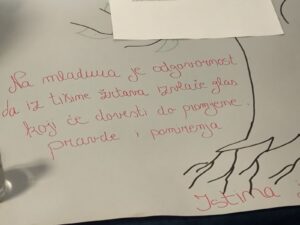 Na mladima je odgovornost
da iz tišine žrtava izvlače glas
koji će dovesti do promjene.
pravde i pomirenja
Istina